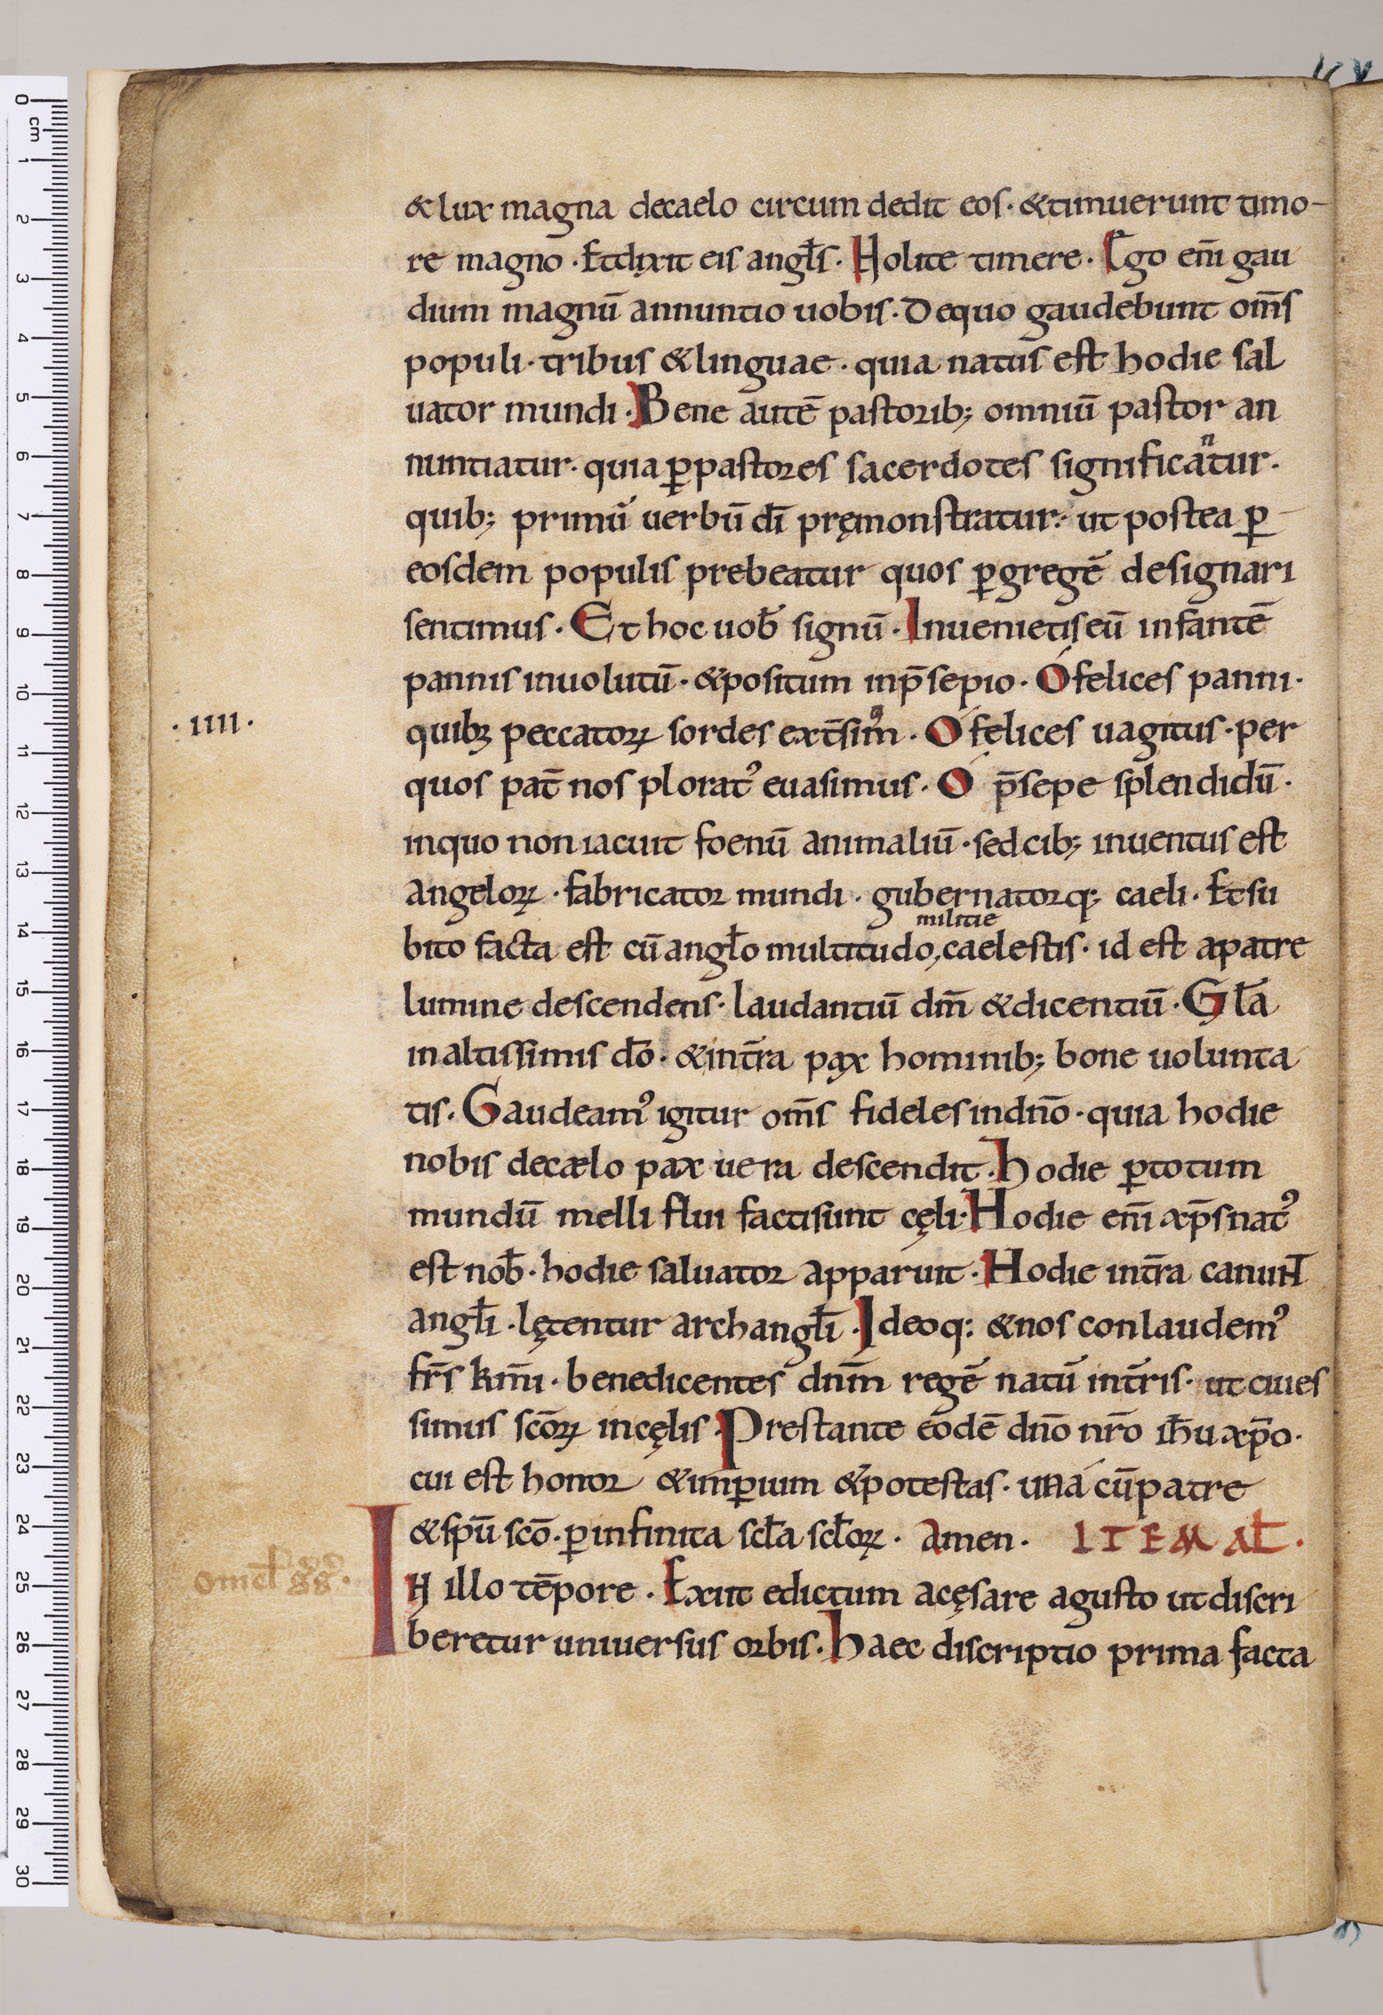 & lux magna decaelo circum dedit eos· &timuerunt timo-
re magno· Etdixit eis angl̄s· Nolite timere· Ego enī gau
dium magnū annuntio uobis· Dequo gaudebunt om̄s
populi· tribus &linguae· quia natus est hodie sal
uator mundi· Bene autē pastorib; omniū pastor an
nuntiatur· quia ꝑpastores sacerdotes significaⁿtur·
quib; primū uerbū dī pręmonstratur· ut postea ꝑ
eosdem populis prebeatur quos ꝑgregē designari
sentimus· Et hoc uob̄ signū· Inuenietis eū infantē
pannis inuolutū· &positum inp̄sepio· Ó felices panni·
·IIII·
quibꝫ peccatoꝝ sordes ext̄simꝰ· Ó felices uagitus· per
quos pat̄ nos ploratꝰ euasimus· Ó p̄sepe splendidū·
inquo non iacuit foenū animaliū· sed cib; inuentus est
angeloꝝ· fabricator mundi· gubernatorq; caeli· Et su
bito facta est cū angl̄o multitudo, militie caelestis· id est apatre
lumine descendens· laudantiū dm̄ &dicentiū· Gl̄a
in altissimis dō· &int̄ra pax hominib; bone uolunta
tis· Gaudeamꝰ igitur om̄s fideles indn̄o· quia hodie
nobis decælo pax uera descendit· hodie ꝑtotum
mundū melli flui facti sunt cęli· Hodie enī xp̄s natꝰ
est nob̄· hodie saluator apparuit· Hodie int̄ra canunt
angl̄i· lętentur archangl̄i· Ideoq: &nos conlaudemꝰ
fr̄s km̄i· benedicentes dnm̄ regē natū int̄ris· ut ciues
simus sc̄oꝝ incęlis· Prestante eodē dn̄o nr̄o ih̄u xp̄o·
cui est honor &imꝑium &potestas· uná cū patre
&spū sc̄o· ꝑ infinita scl̄a scl̄oꝝ· Amen· ITEM AL̄·
omel̄ gg·
IN illo tēpore· Exiit edictum acęsare agusto ut discri
beretur uniuersus orbis· haec discriptio prima facta